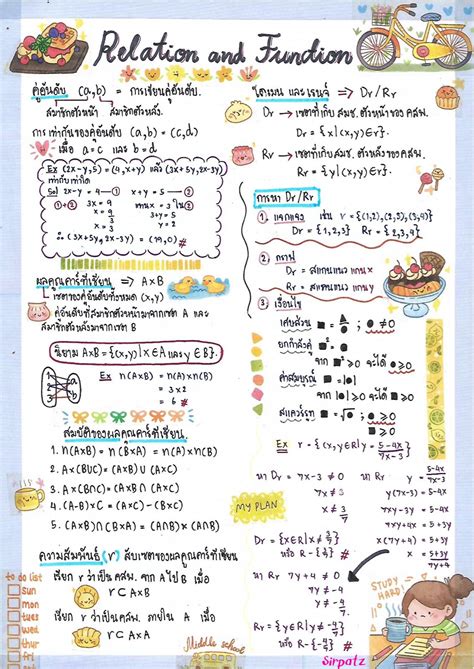 Relation and Function
คู่อันดับ (a,b) = การเขียนคู่อันดับ.
สมาชิกตัวหน้า สมาชิกตัวหลัง.
การเท่ากันของคู่อันดับ (a,b) = (c,d)
เมื่อ a=c และ b=d
Ex (2x-y,5) = (4,x+y) แล้ว (3x+5y,2x-3y)
เท่ากับเท่าใด
Sol 2x-y = 4 —① x+y = 5 —②
①+② 3x = 9 แทน x = 3 ใน ②
x = 9/3 3+y = 5
x = 3 y = 2
∴ (3x+5y,2x-3y) = (19,0) #
ผลคูณคาร์ทีเซียน ⇒ A×B
เซตของคู่อันดับทั้งหมด (x,y)
คู่อันดับที่สมาชิกตัวหน้ามาจากเซต A และ
สมาชิกตัวหลังมาจากเซต B
นิยาม A×B = {(x,y) | x∈A และ y∈B}.
Ex n(A×B) = n(A)×n(B)
= 3×2
= 6 #
สมบัติของผลคูณคาร์ทีเซียน.
1. n(A×B) = n(B×A) = n(A)×n(B)
2. A×(B∪C) = (A×B)∪(A×C)
3. A×(B∩C) = (A×B)∩(A×C)
4. (A-B)×C = (A×C)-(B×C)
5. (A×B)∩(B×A) = (A∩B)×(A∩B)
ความสัมพันธ์ (r) สับเซตของผลคูณคาร์ทีเซียน
เรียก r ว่าเป็น คสพ. จาก A ไป B เมื่อ
r⊂A×B
เรียก r ว่าเป็น คสพ. ภายใน A เมื่อ
r⊂A×A
to do list
sun
mon
tues
wed
thur
fri
Middle school
โดเมน และ เรนจ์ ⇒ Dr/Rr
Dr ⇒ เซตที่เก็บ สมช.ตัวหน้าของ คสพ.
Dr = {x|(x,y)∈r}.
Rr ⇒ เซตที่เก็บ สมช.ตัวหลังของ คสพ.
Rr = {y|(x,y)∈r}.
การหา Dr/Rr
① แจกแจง เช่น r = {(1,2),(2,3),(3,4)}
Dr = {1,2,3} Rr = {2,3,4}
② กราฟ
Dr = สแกนแนว แกน x
Rr = สแกนแนว แกน y
③ เงื่อนไข
เศษส่วน
ยกกำลังคู่
ค่าสัมบูรณ์
สแควร์รูท
Ex r = {(x,y∈R|y = (5-4x)/(7x-3)}
หา Dr = 7x-3 ≠ 0
7x ≠ 3
x ≠ 3/7
Dr = {x∈R|x ≠ 3/7}
หรือ R-{3/7} #
หา Rr y = (5-4x)/(7x-3)
y(7x-3) = 5-4x
7xy-3y = 5-4x
7xy+4x = 5+3y
x(7y+4) = 5+3y
x = (5+3y)/(7y+4)
หา Rr 7y+4 ≠ 0
7y ≠ -4
y ≠ -4/7
Rr = {y∈R|y ≠ -4/7}
หรือ R-{-4/7} #
MY PLAN
STUDY
HARD!
Sirpatz